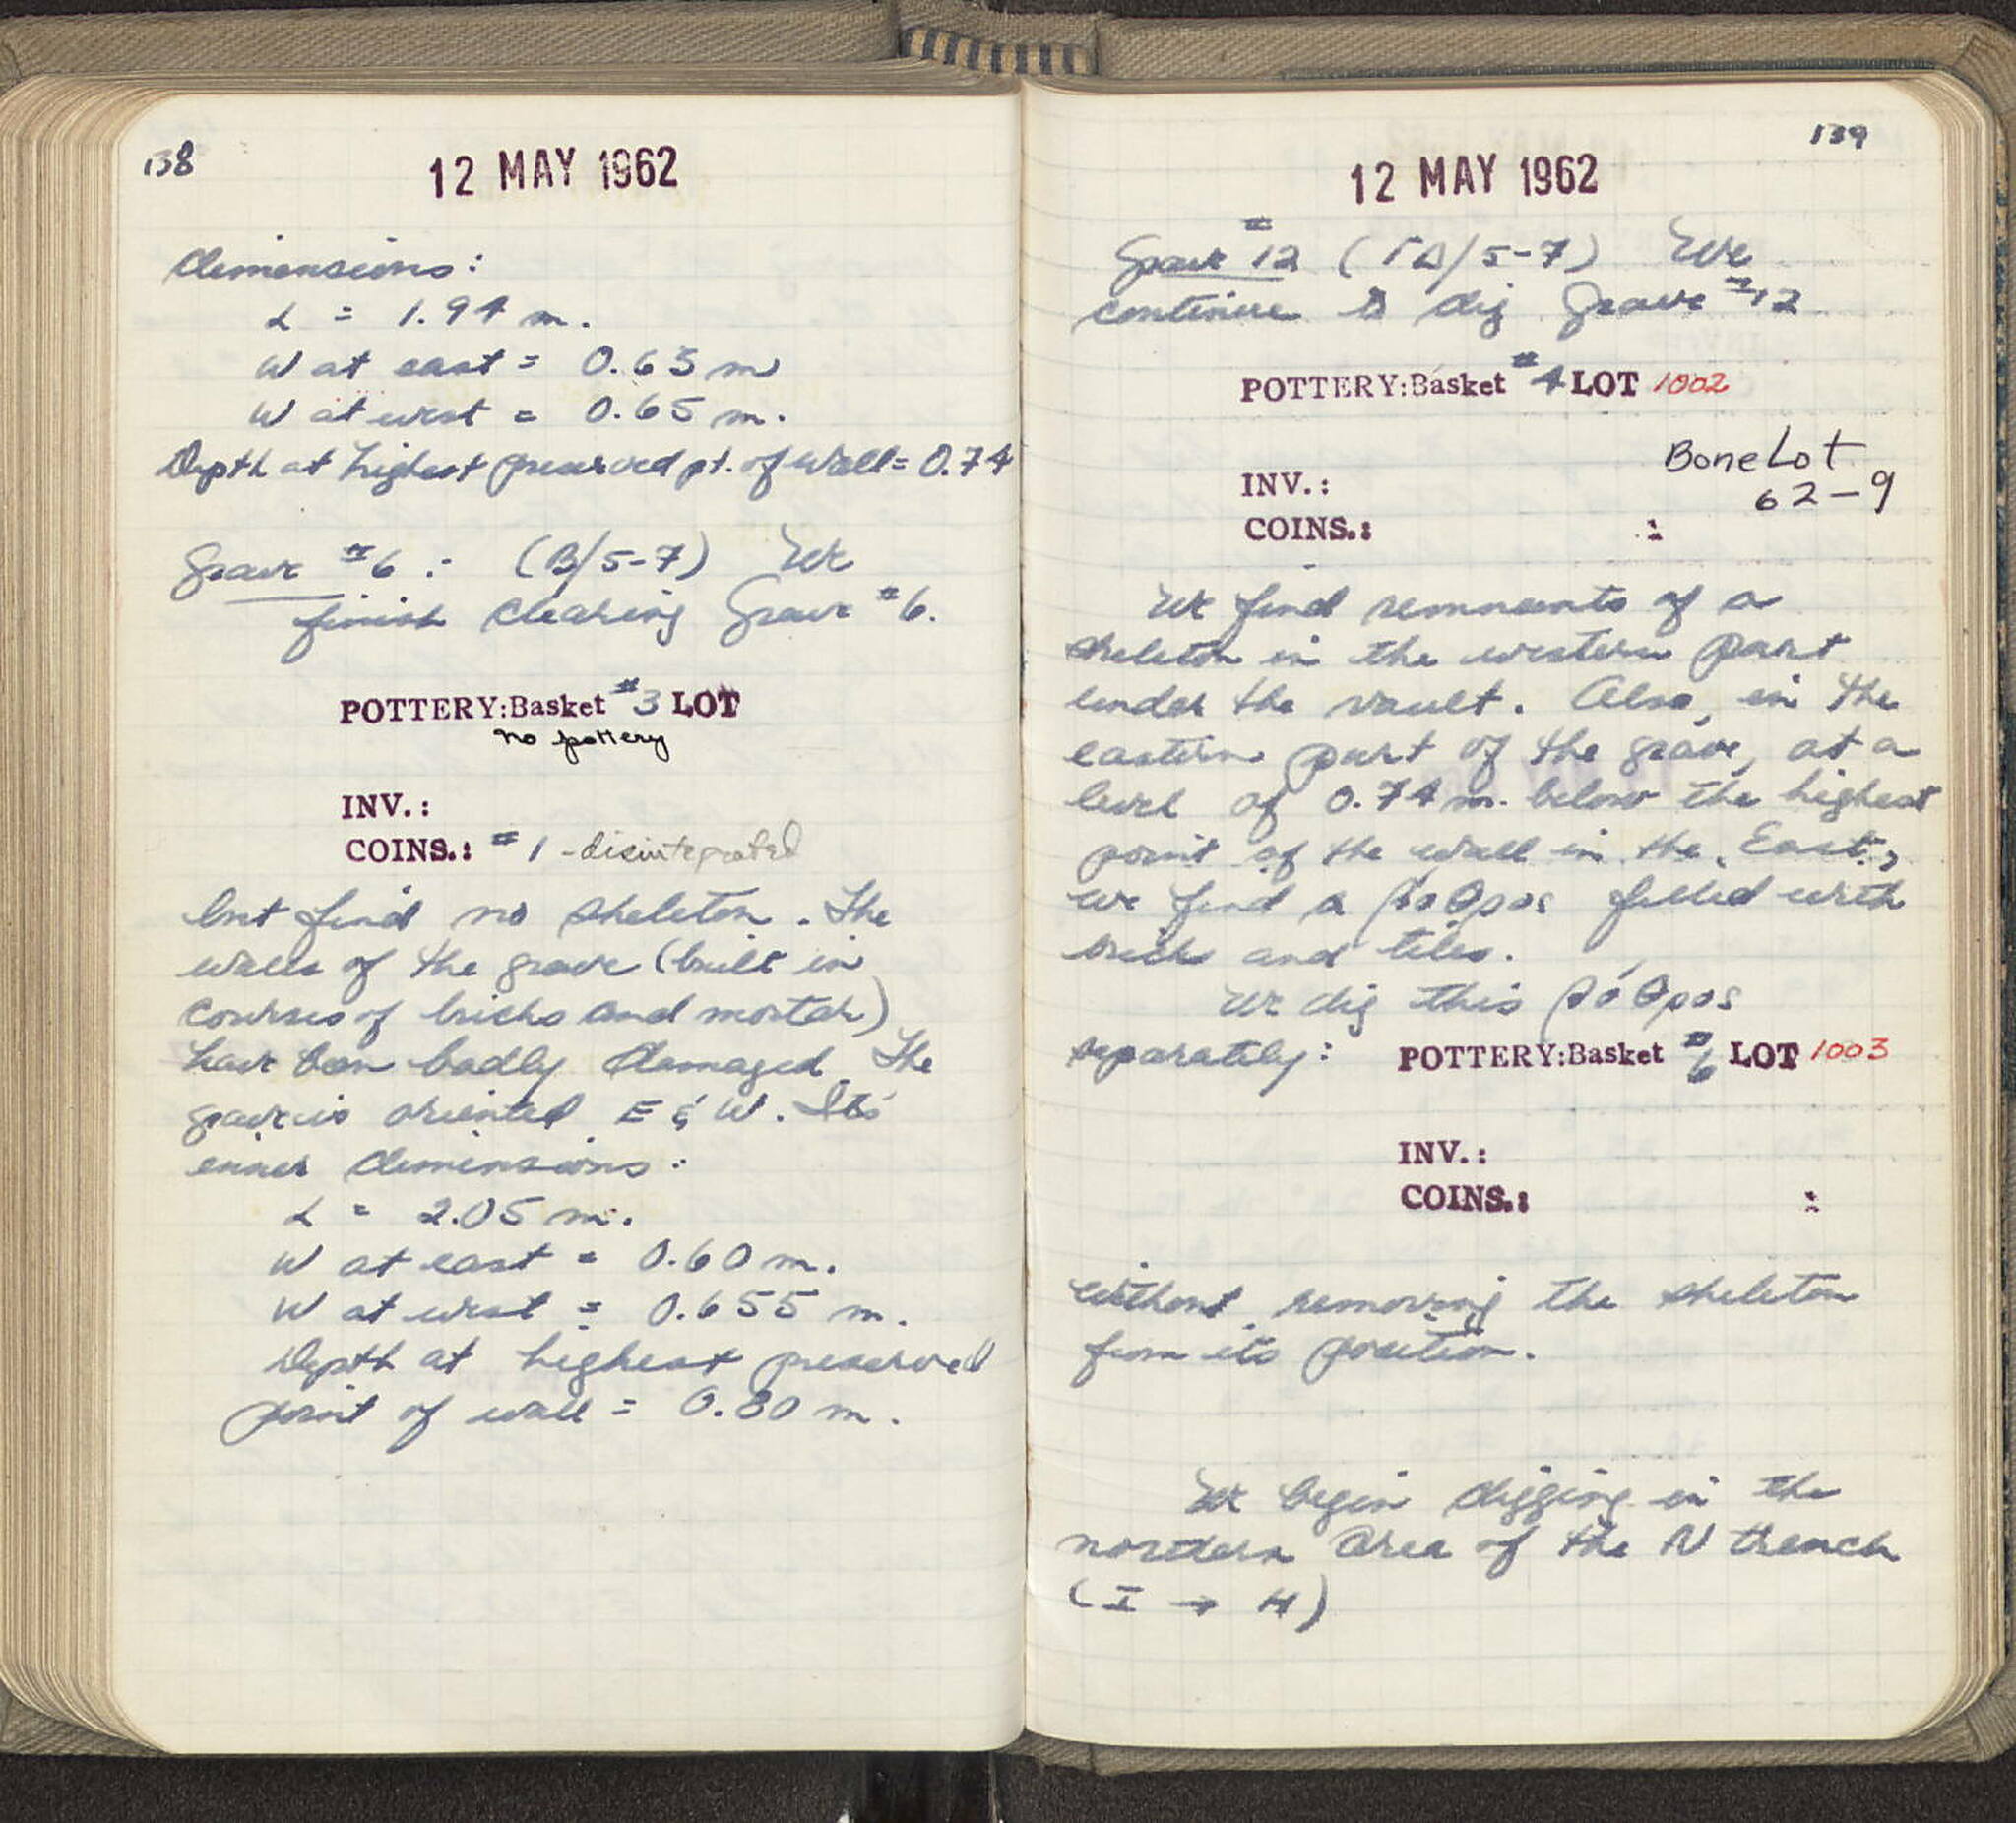 138
12 MAY 1962
dimensions:
L = 1.94 m.
W at east = 0.63 m
W at west = 0.65 m.
Depth at highest preserved pt. of wall = 0.74
Grave #6 : (B/5-7) We
finish clearing Grave #6.
POTTERY:Basket #3 LOT
no pottery
INV.:
COINS.: #1 - disintegrated
but find no skeleton. The
walls of the grave (built in
courses of bricks and mortar)
have been badly damaged. The
grave is oriented E & W. Its
inner dimensions:
L = 2.05 m.
W at east = 0.60 m.
W at west = 0.655 m.
Depth at highest preserved
point of wall = 0.80 m.
139
12 MAY 1962
Grave #12 (ΓΔ/5-7) We
continue to dig Grave #12
POTTERY:Basket #4 LOT 1002
Bone Lot
62-9
INV.:
COINS.: :
We find remnants of a
skeleton in the western part
under the vault. Also, in the
eastern part of the grave, at a
level of 0.74 m. below the highest
point of the wall in the East,
we find a βόθρος filled with
bricks and tiles.
We dig this βόθρος
separately: POTTERY:Basket #6 LOT 1003
INV.:
COINS.: :
without removing the skeleton
from its position.
We begin digging in the
northern area of the N trench
(I → H)